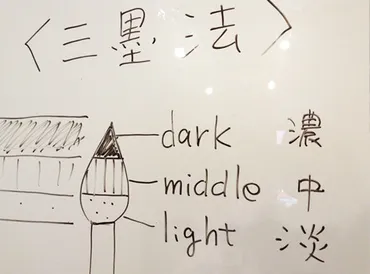 〈三墨法〉
dark 濃
middle 中
light 淡